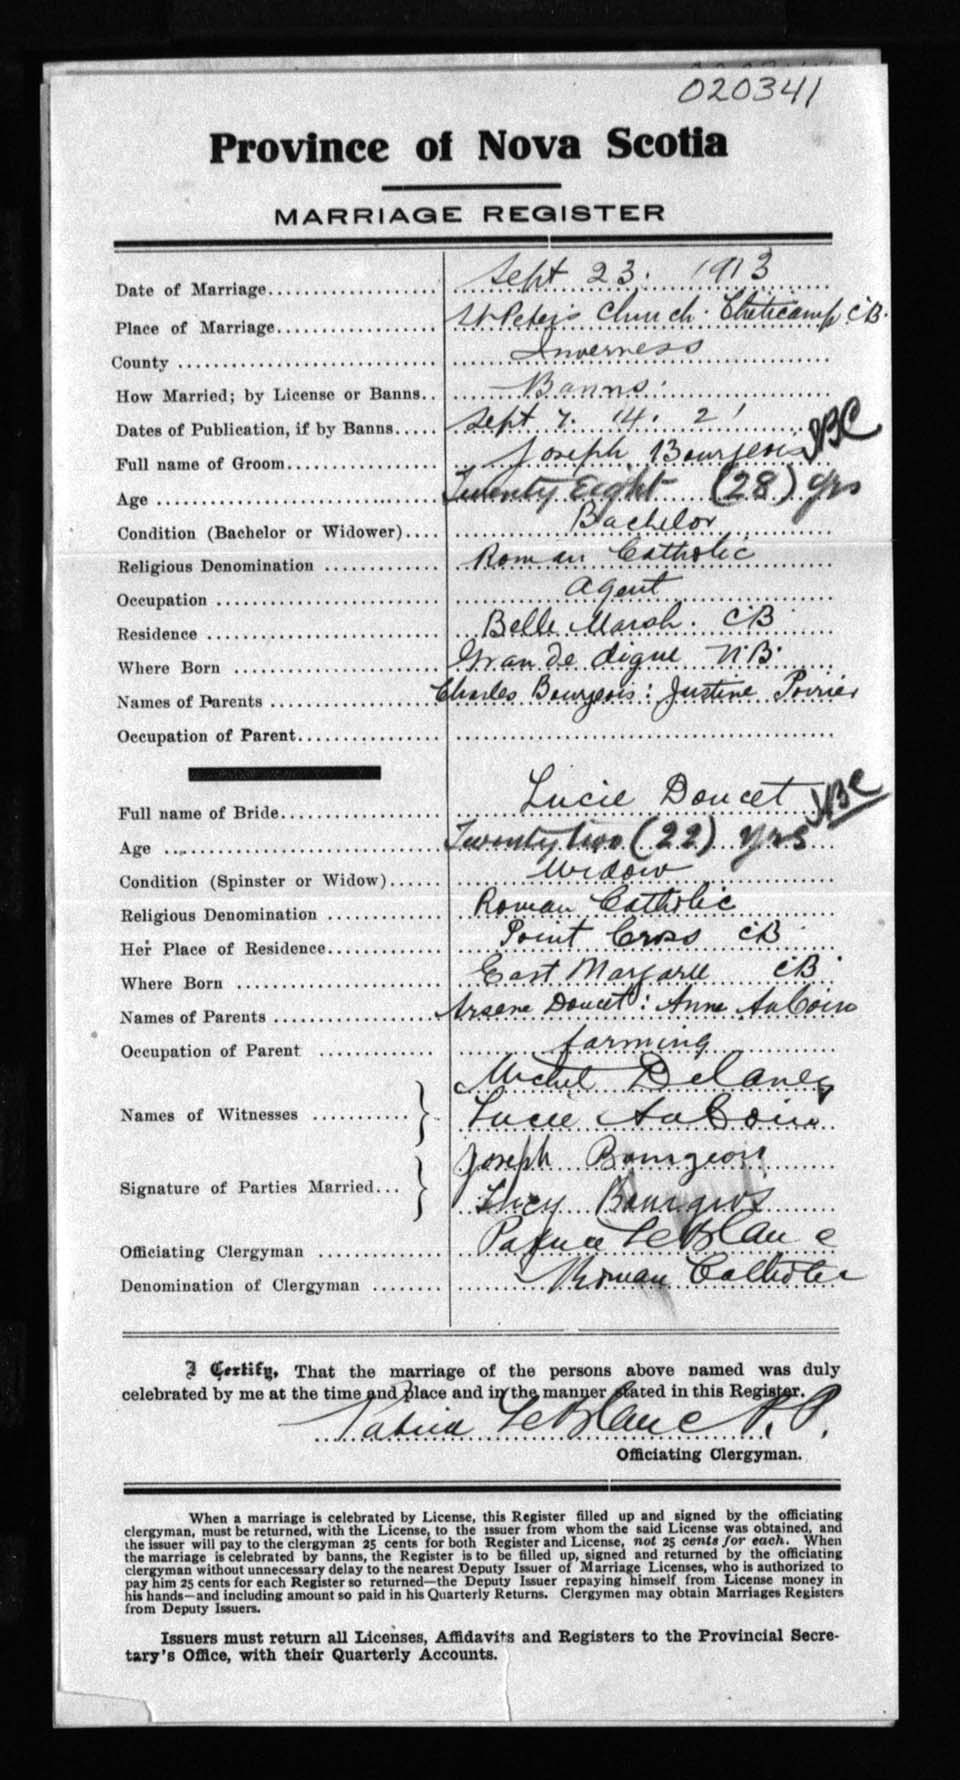 020341
Province of Nova Scotia
MARRIAGE REGISTER
Date of Marriage.................... Sept 23. 1913
Place of Marriage.................. St Peter's Church. Cheticamp C.B.
County .............................. Inverness
How Married; by License or Banns.. Banns.
Dates of Publication, if by Banns..... Sept 7. 14. 21
Full name of Groom.................. Joseph Bourgeois
Age .................................. Twenty Eight (28) yrs
Condition (Bachelor or Widower).... Bachelor
Religious Denomination ............. Roman Catholic
Occupation .......................... Agent
Residence ........................... Belle Marsh. C.B.
Where Born ......................... Grande digue N.B.
Names of Parents .................... Charles Bourgeois: Justine Poirier
Occupation of Parent.................
Full name of Bride................... Lucie Doucet
Age ................................. Twenty two (22) yrs
Condition (Spinster or Widow)...... Widow
Religious Denomination ............. Roman Catholic
Her Place of Residence............. Point Cross C.B.
Where Born ......................... East Margaree C.B.
Names of Parents .................... Arsene Doucet: Anne AuCoin
Occupation of Parent .............. farming
Names of Witnesses ........... Michel DeLaney
Lucie AuCoin
Signature of Parties Married... Joseph Bourgeois
Lucy Bourgeois
Officiating Clergyman .............. LeBlanc
Denomination of Clergyman ........ Roman Catholic
I Certify, That the marriage of the persons above named was duly
celebrated by me at the time and place and in the manner stated in this Register.
LeBlanc P.P.
Officiating Clergyman.
When a marriage is celebrated by License, this Register filled up and signed by the officiating
clergyman, must be returned, with the License, to the issuer from whom the said License was obtained, and
the issuer will pay to the clergyman 25 cents for both Register and License, not 25 cents for each. When
the marriage is celebrated by banns, the Register is to be filled up, signed and returned by the officiating
clergyman without unnecessary delay to the nearest Deputy Issuer of Marriage Licenses, who is authorized to
pay him 25 cents for each Register so returned—the Deputy Issuer repaying himself from License money in
his hands—and including amount so paid in his Quarterly Returns. Clergymen may obtain Marriages Registers
from Deputy Issuers.
Issuers must return all Licenses, Affidavits and Registers to the Provincial Secre-
tary's Office, with their Quarterly Accounts.